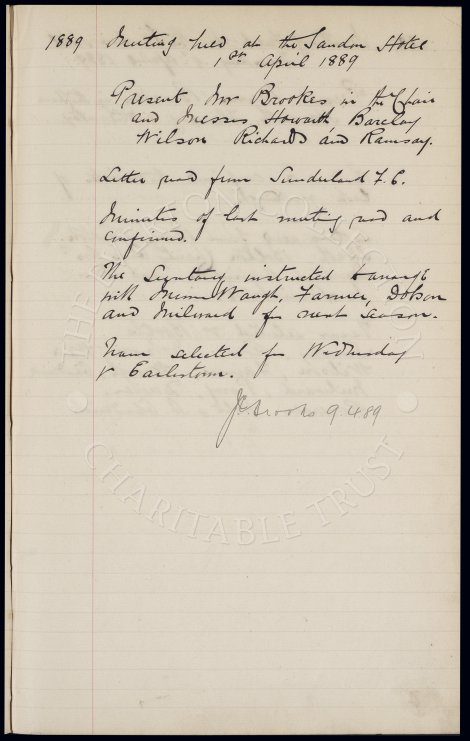 1889 Meeting held at the Sandon Hotel
1st April 1889
Present Mr Brookes in the Chair
and Messrs Howarth Barclay
Wilson Richards and Ramsay.
Letter read from Sunderland F.C.
Minutes of last meeting read and
confirmed.
The Secretary instructed to arrange
with Messrs Waugh, Farmer, Dobson
and Milward for next season.
Team selected for Wednesday
v Earlestown.
9.4.89
THE COLLECTION
CHARITABLE TRUST